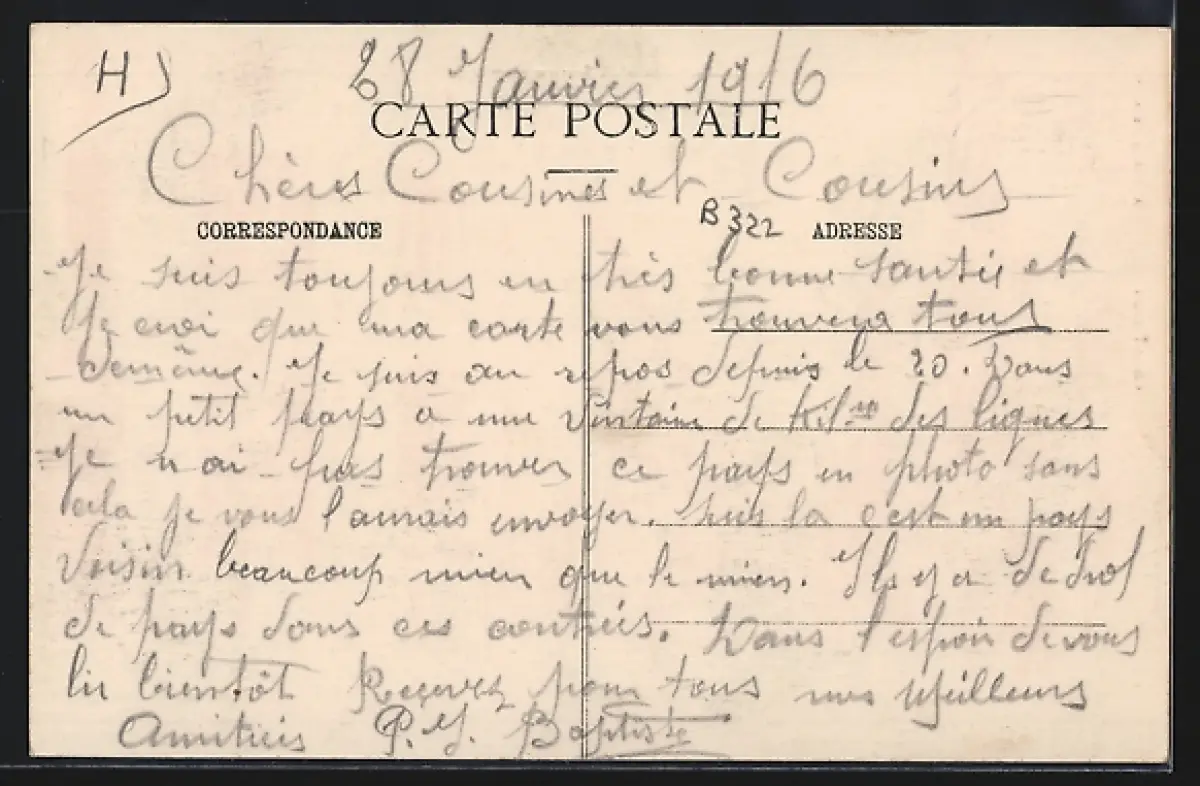 H
28 Janvier 1916
CARTE POSTALE
Chères Cousines et Cousins
B 322
CORRESPONDANCE ADRESSE
Je suis toujours en très bonne santée et
je croi que ma carte vous trouvera tous
demême. Je suis au repos depuis le 20. Dans
un petit pays a une vintaine de Kil des lignes
Je n ai pas trouver ce pays en photo sans
cela je vous l aurais envoyer. puis la c est un pays
Voisin beaucoup mieu que le mien. Il y a de drol
de pays dans ces contrées. Dans l espoir de vous
lir bientôt Recevez pour tous mes meilleurs
Amitiés P. J. Baptiste